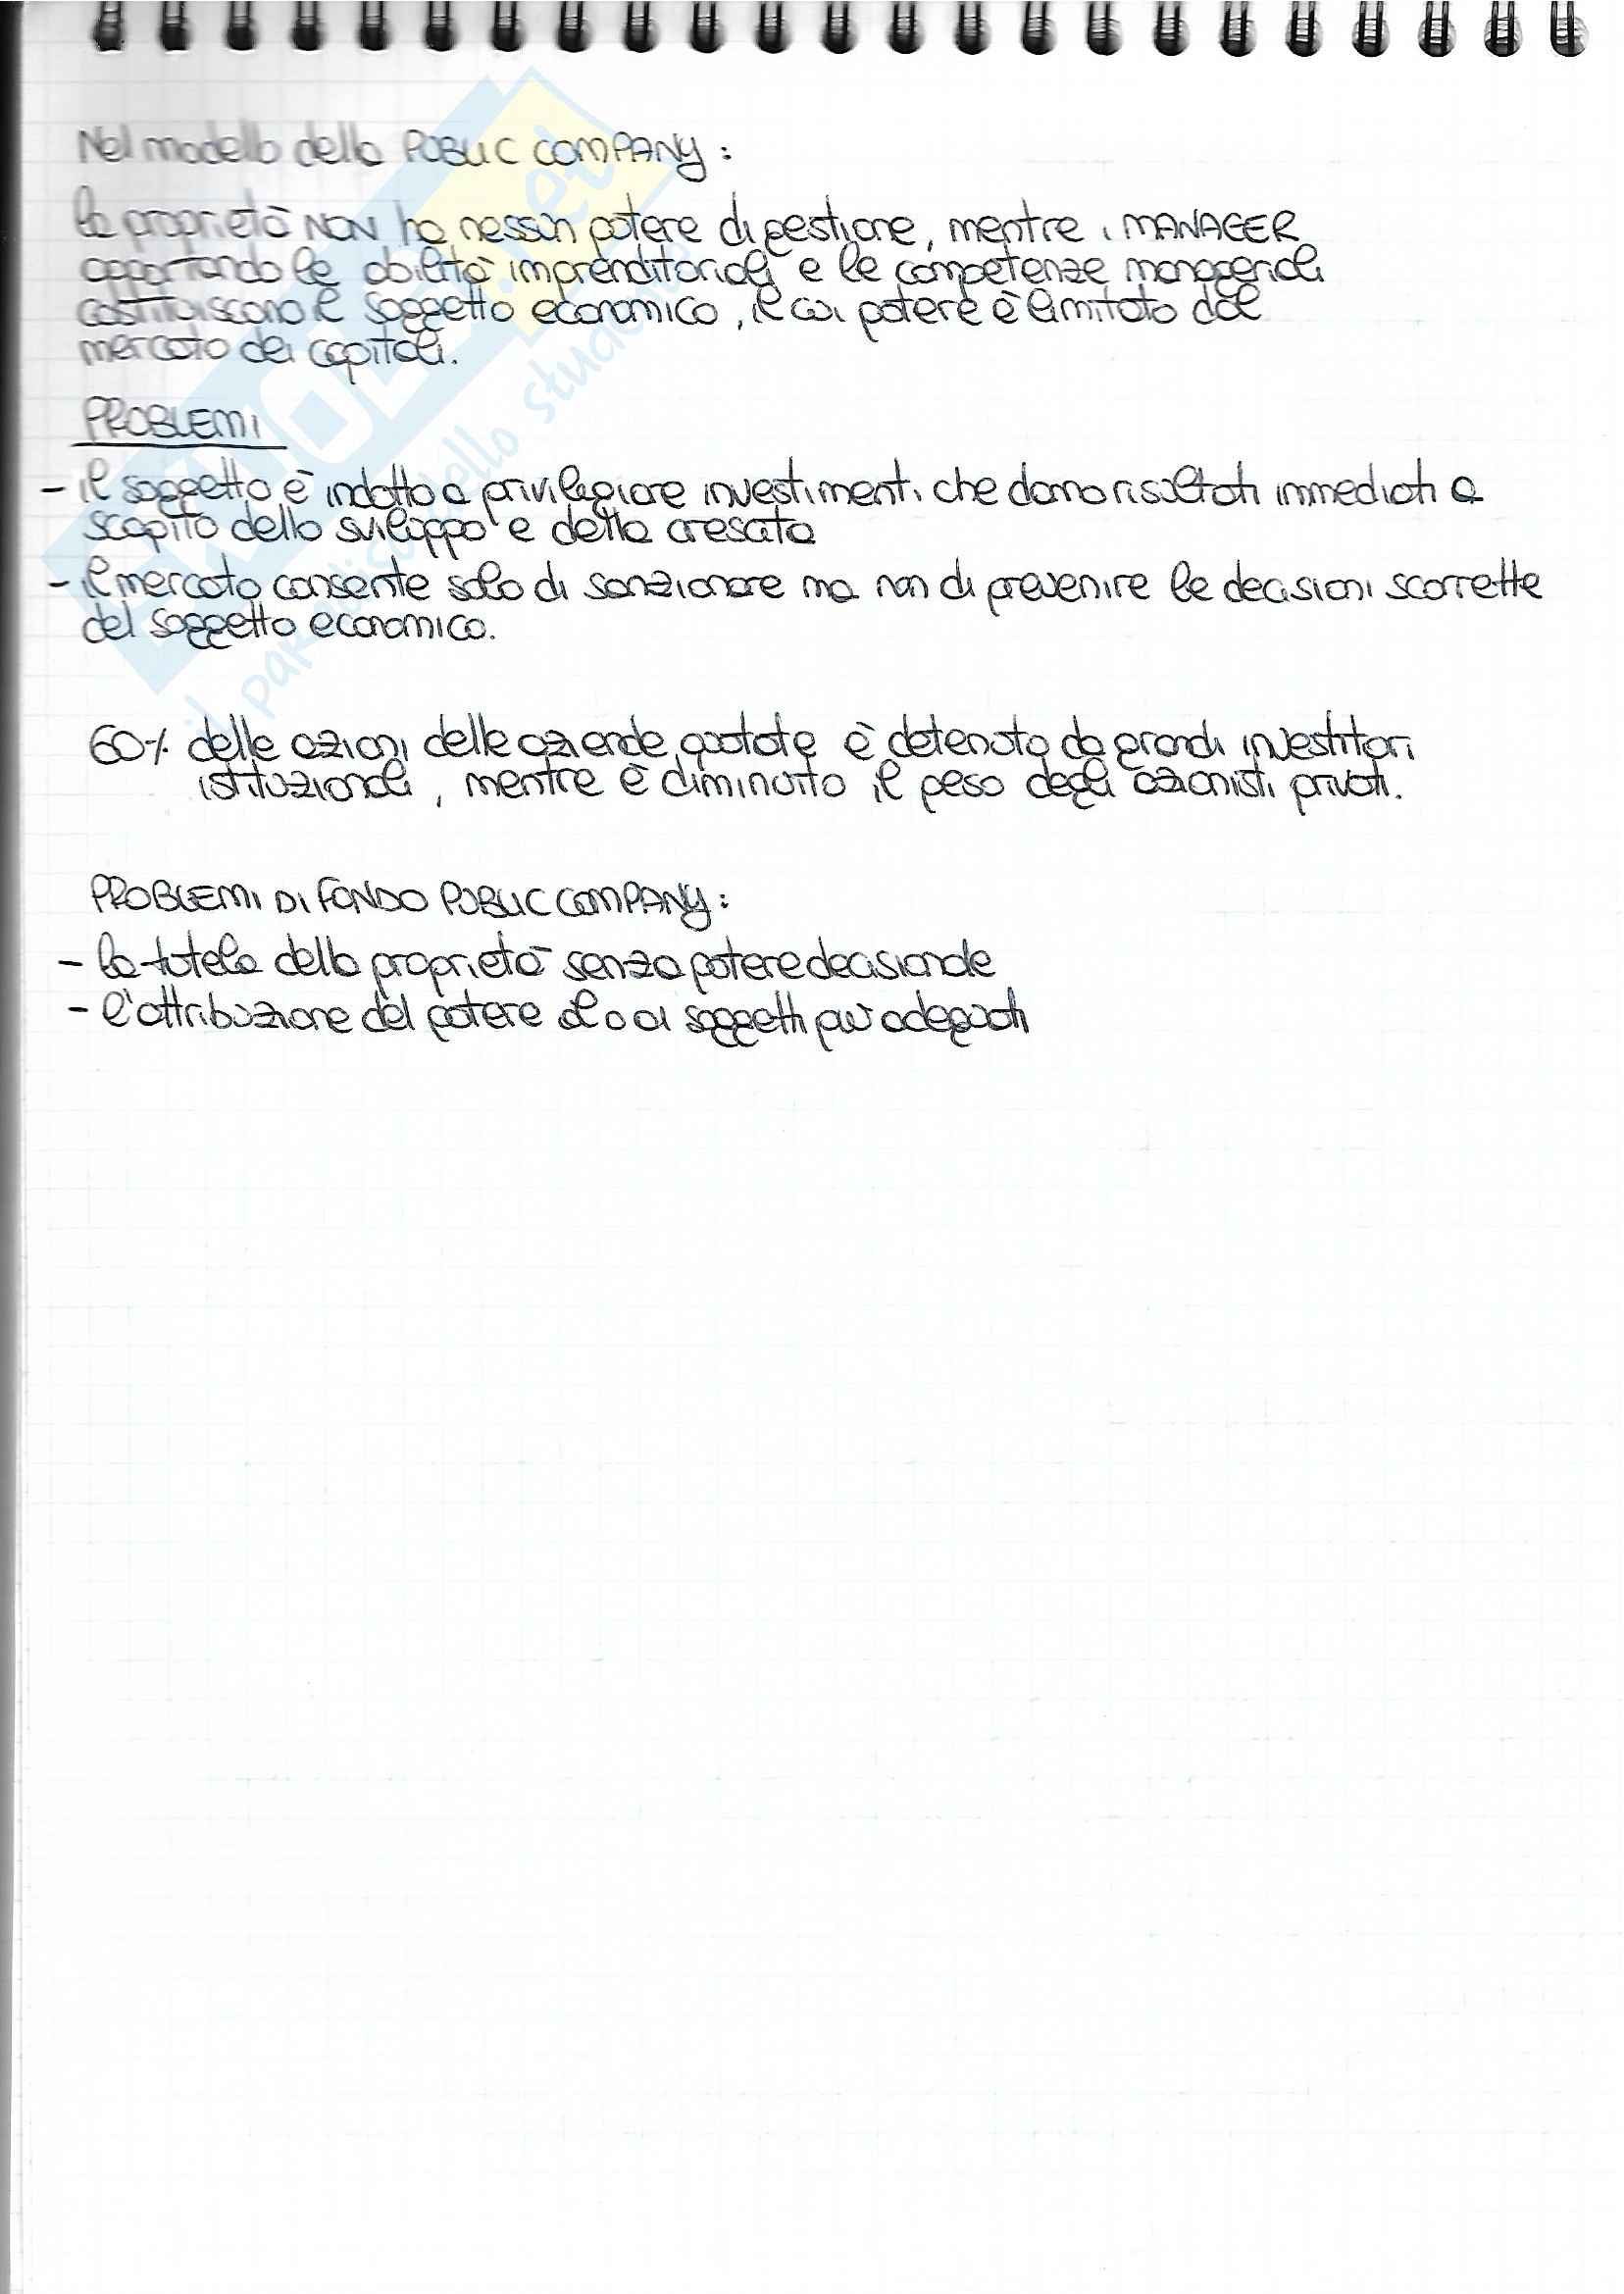 Nel modello della PUBLIC COMPANY:
la proprietà NON ha nessun potere di gestione, mentre i MANAGER
apportando le abilità imprenditoriali e le competenze manageriali
costituiscono il soggetto economico, il cui potere è limitato dal
mercato dei capitali.
PROBLEMI
- il soggetto è indotto a privilegiare investimenti che danno risultati immediati a
scapito dello sviluppo e della crescita
- il mercato consente solo di sanzionare ma non di prevenire le decisioni scorrette
del soggetto economico.
60% delle azioni delle aziende quotate è detenuto da grandi investitori
istituzionali, mentre è diminuito il peso degli azionisti privati.
PROBLEMI DI FONDO PUBLIC COMPANY:
- la tutela della proprietà senza potere decisionale
- l'attribuzione del potere al o ai soggetti più adeguati
il paradiso dello studente